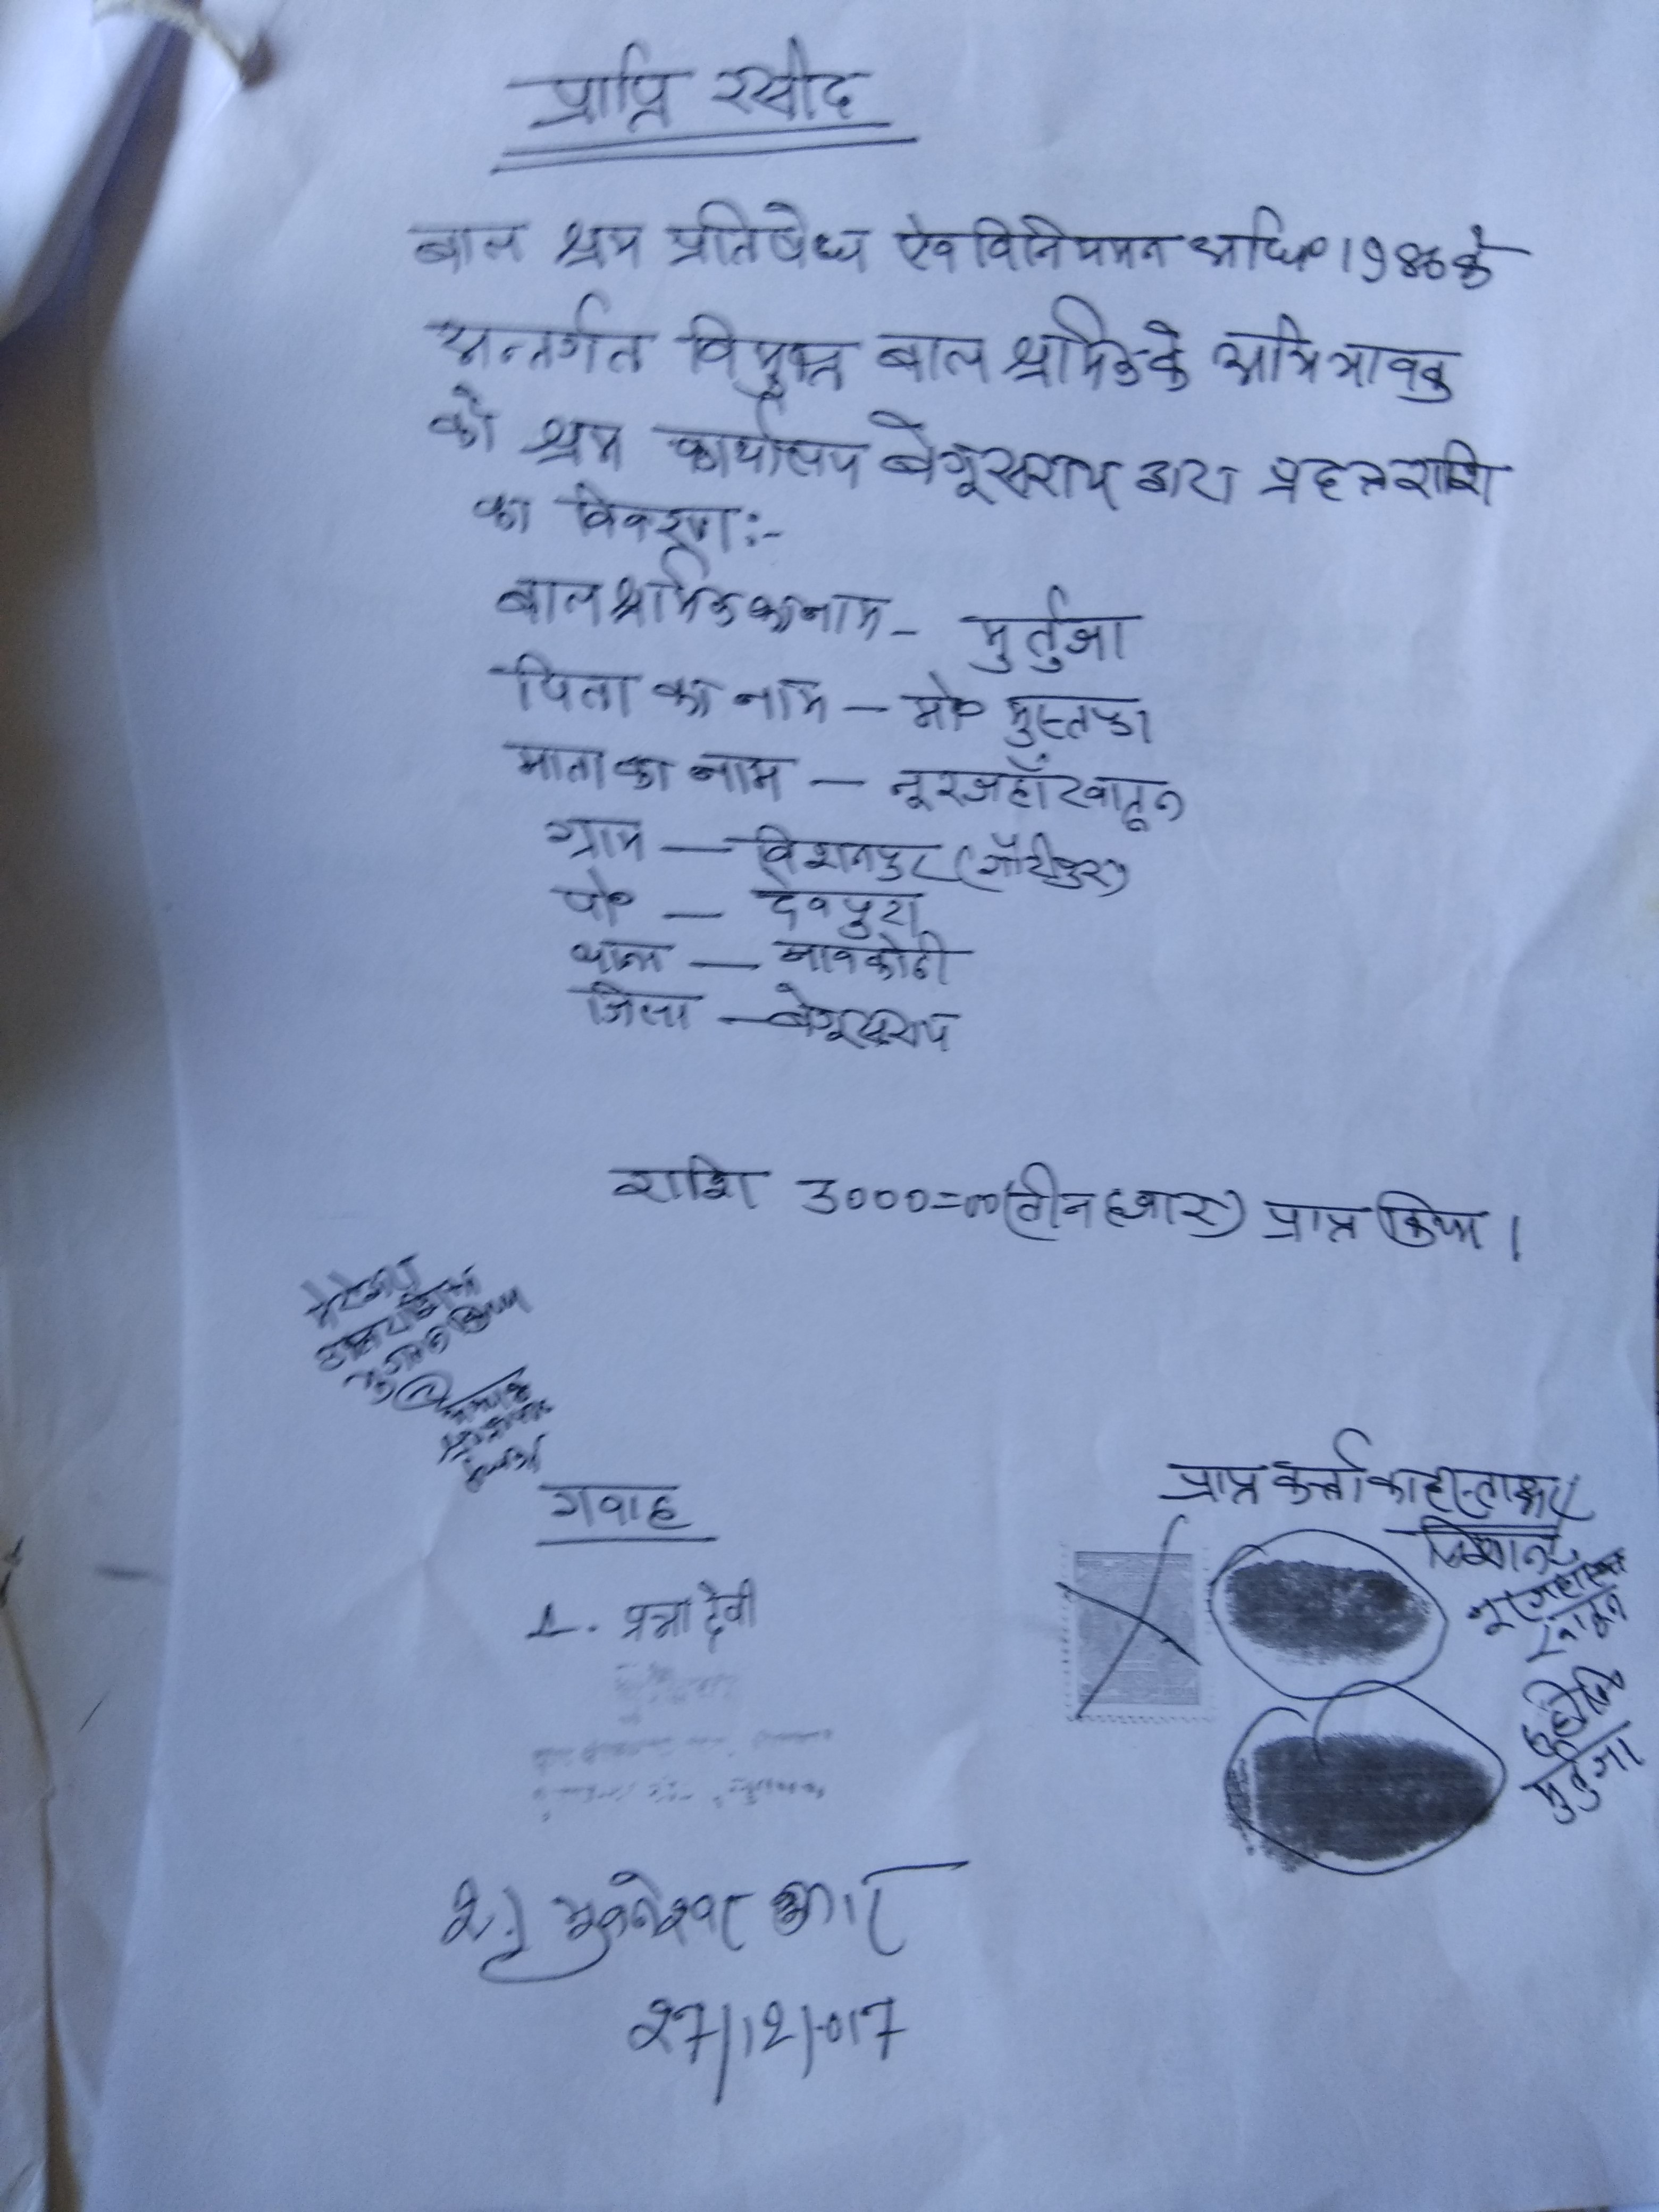 प्राप्ति रसीद
बाल श्रम प्रतिषेध एंव विनियमन अधि० 1986 के
अन्तर्गत विमुक्त बाल श्रमिक के अभिभावक
को श्रम कार्यालय बेगूसराय द्वारा प्रदत्त राशि
का विवरण :-
बाल श्रमिक का नाम - मुर्तुजा
पिता का नाम - मो० मुस्तफा
माता का नाम - नूरजहाँ खातून
ग्राम - विशनपुर
पो० - देवपुरा
थाना - नावकोठी
जिला - बेगूसराय
राशि 3000=00 (तीन हजार) प्राप्त किया ।
गवाह
प्राप्त कर्ता का हस्ताक्षर
निशान
खातून
मुर्तुजा
1. देवी
2.) भुवनेश्वर
27/12/017